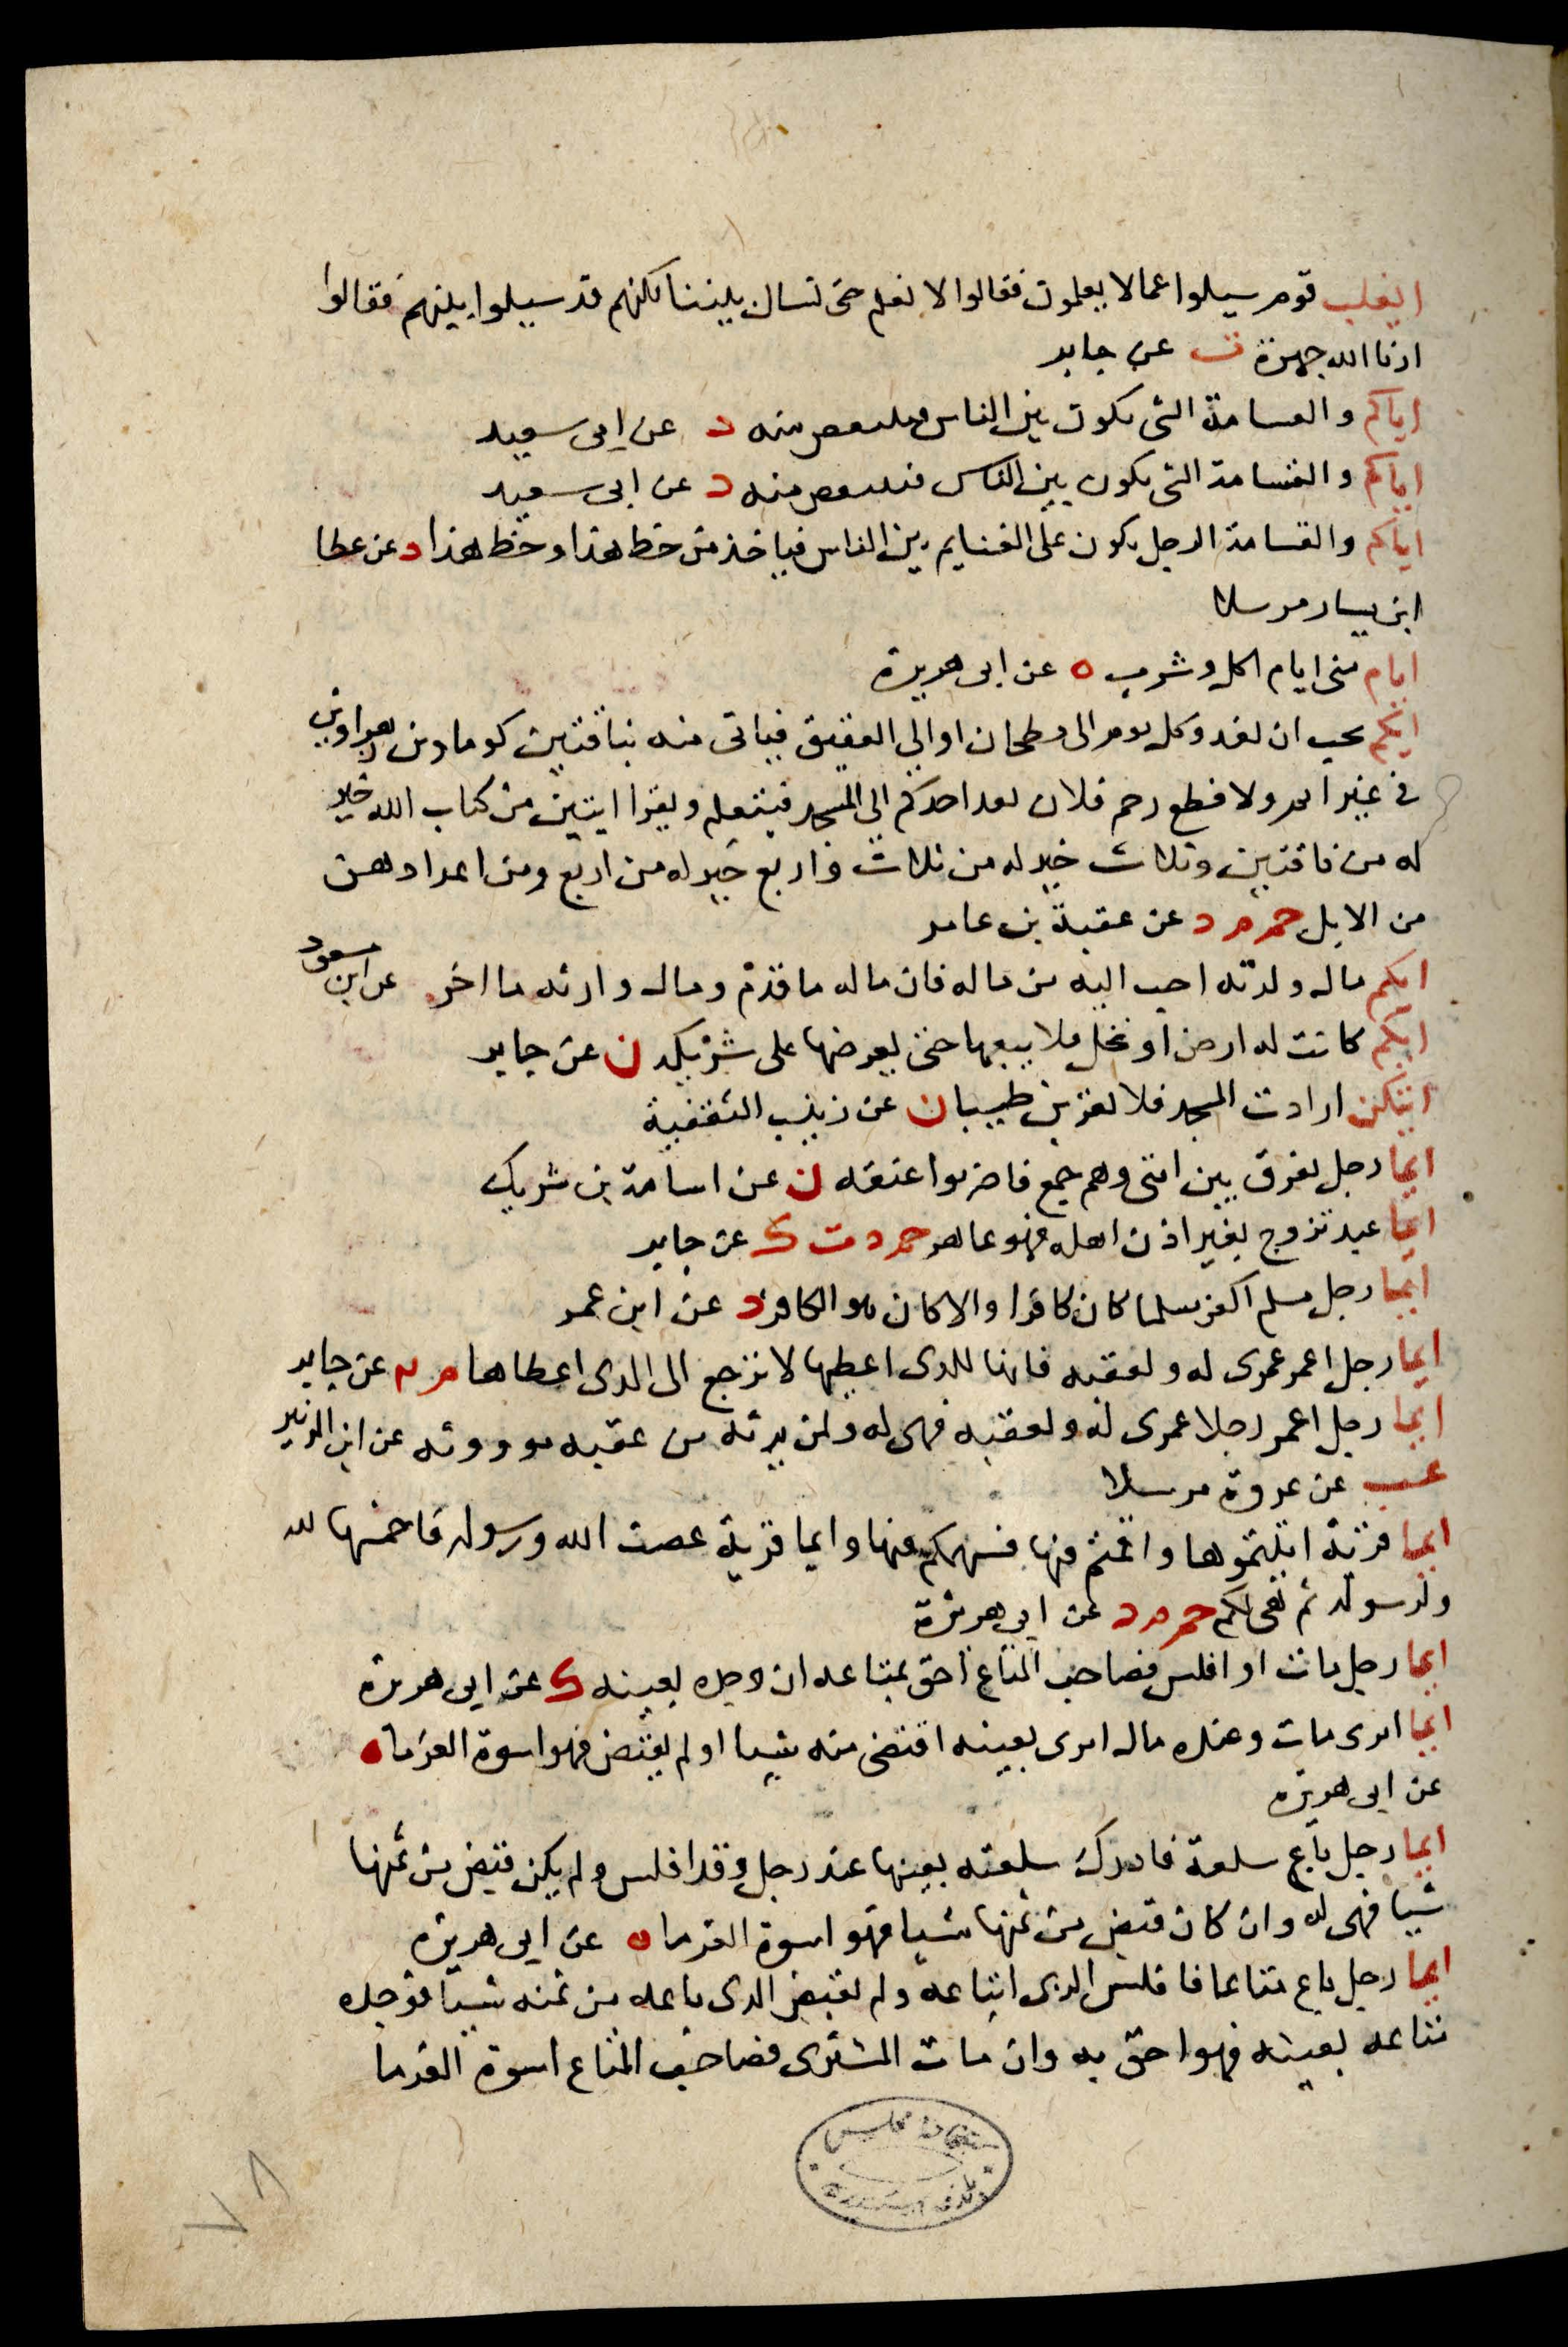 ايغلب قوم سيلوا عما لا يعلمون فقالوا لا نعلم حتى نسال بيننا لكنهم قد سيلوا بينهم فقالوا
ارنا الله جهرة ت عن جابر
اياكم والقسامة التى يكون بين الناس منه د عن ابى سعيد
اياكم والقسامة التى يكون بين الناس منه د عن ابى سعيد
اياكم والقسامة الرجل يكون على الغنايم بين الناس فياخذ من حظ هذا وحظ هذا د عن عطا
ابن يسار مرسلا
ايام منى ايام اكل وشرب ه عن ابى هريرة
ايكم يحب ان يغدو كل يوم الى بطحان او الى العقيق فياتى منه بناقتين كوماوين زهراوين
فى غير اثم ولا قطع رحم فلان يغدا احدكم الى المسجد فيتعلم ويقرا ايتين من كتاب الله خير
له من ناقتين وثلاث خير له من ثلاث واربع خير له من اربع ومن اعدادهن
من الابل حم م د عن عقبة بن عامر
ايكم مال ورثه احب اليه من ماله فان ماله ما قدم ومال وارثه ما اخر عن ابن مسعود
ايكم كانت له ارض او نخل فلا يبيعها حتى يعرضها على شريكه ن عن جابر
ايتكن ارادت المسجد فلا تقربن طيبا ن عن زينب الثقفية
ايما رجل يفرق بين امتى وهم جمع فاضربوا عنقه ن عن اسامة بن شريك
ايما عبد تزوج بغير اذن اهله فهو عاهر حم د ت ك عن جابر
ايما رجل مسلم اكفر مسلما كان كافرا والا كان هو الكافر د عن ابن عمر
ايما رجل اعمر عمرى له ولعقبه فانها للذى اعطيها لا ترجع الى الذى اعطاها م عن جابر
ايما رجل اعمر رجلا عمرى له ولعقبه فهى له ولمن يرثه من عقبه موروثه عن ابن الزبير
عب عن عروة مرسلا
ايما قرية اتيتموها واقمتم فيها فسهمكم فيها وايما قرية عصت الله ورسوله فاخمسها لله
ولرسوله ثم هى لكم حم م د عن ابى هريرة
ايما رجل مات او افلس فصاحب المتاع احق بمتاعه ان وجده بعينه ك عن ابى هريرة
ايما امرى مات وعنده مال امرى بعينه اقتضى منه شيا او لم يقتض فهو اسوة الغرما ه
عن ابى هريرة
ايما رجل باع سلعة فادرك سلعته بعينها عند رجل وقد افلس ولم يكن قبض من ثمنها
شيا فهى له وان كان قبض من ثمنها شيا فهو اسوة الغرما ه عن ابى هريرة
ايما رجل باع متاعا فافلس الذى ابتاعه ولم يقبض الذى باعه من ثمنه شيا فوجده
متاعه بعينه فهو احق به وان مات المشترى فصاحب المتاع اسوة الغرما
٧٨